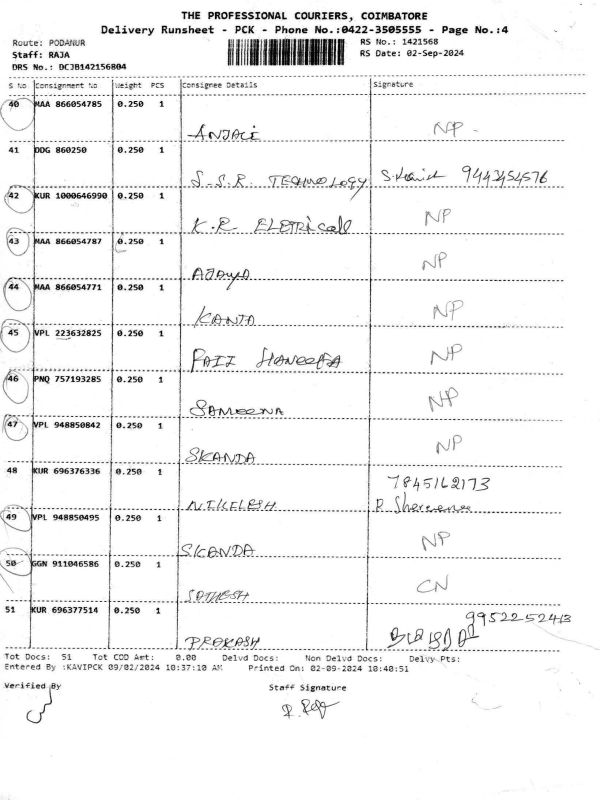 THE PROFESSIONAL COURIERS, COIMBATORE
Delivery Runsheet - PCK - Phone No.:0422-3505555 - Page No.:4
Route: PODANUR RS No.: 1421568
Staff: RAJA RS Date: 02-Sep-2024
DRS No.: DCJB142156804
S No Consignment No Weight PCS Consignee Details Signature
40 MAA 866054785 0.250 1
ANJALI NP
41 DDG 860250 0.250 1
S.S.R. TECHNOLOGY 9443454576
42 KUR 1000646990 0.250 1
K.R ELETRICALL NP
43 MAA 866054787 0.250 1
AJAYA NP
44 MAA 866054771 0.250 1
KANTA NP
45 VPL 223632825 0.250 1
FAIZ HANEEFA NP
46 PNQ 757193285 0.250 1
SAMEENA NP
47 VPL 948850842 0.250 1
SKANDA NP
48 KUR 696376336 0.250 1 7845162173
NIKELESH
49 VPL 948850495 0.250 1
SKANDA NP
50 GGN 911046586 0.250 1
SATHESH CN
51 KUR 696377514 0.250 1 9952252413
PRAKASH
Tot Docs: 51 Tot COD Amt: 0.00 Delvd Docs: Non Delvd Docs: Delvy Pts:
Entered By :KAVIPCK 09/02/2024 10:37:10 AM Printed On: 02-09-2024 10:40:51
Verified By Staff Signature